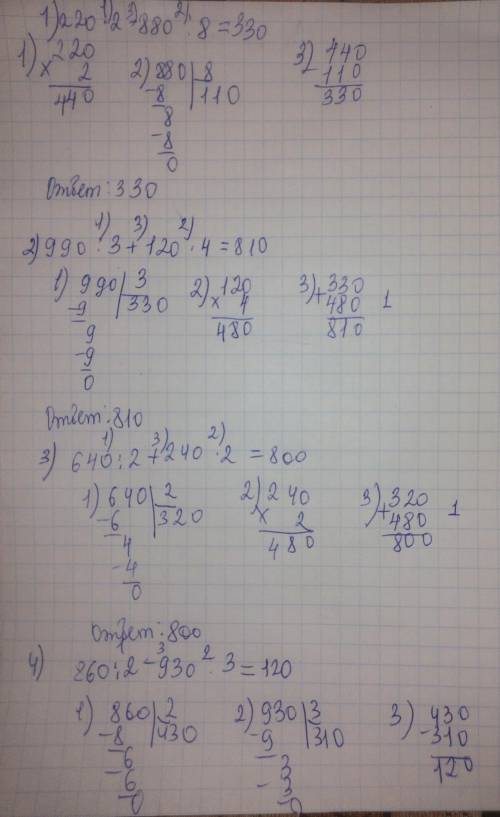 1) 220 · 2 - 880 : 8 = 330
1) 220
× 2
440
2) 880 | 8
-8 | 110
8
-8
0
3) 440
- 110
330
Ответ: 330
2) 990 : 3 + 120 · 4 = 810
1) 990 | 3
-9 | 330
9
-9
0
2) 120
× 4
480
3) 330
+ 480 1
810
Ответ: 810
3) 640 : 2 + 240 · 2 = 800
1) 640 | 2
-6 | 320
4
-4
0
2) 240
× 2
480
3) 320
+ 480 1
800
Ответ: 800
4) 860 : 2 - 930 : 3 = 120
1) 860 | 2
-8 | 430
6
-6
0
2) 930 | 3
-9 | 310
3
-3
0
3) 430
-310
120